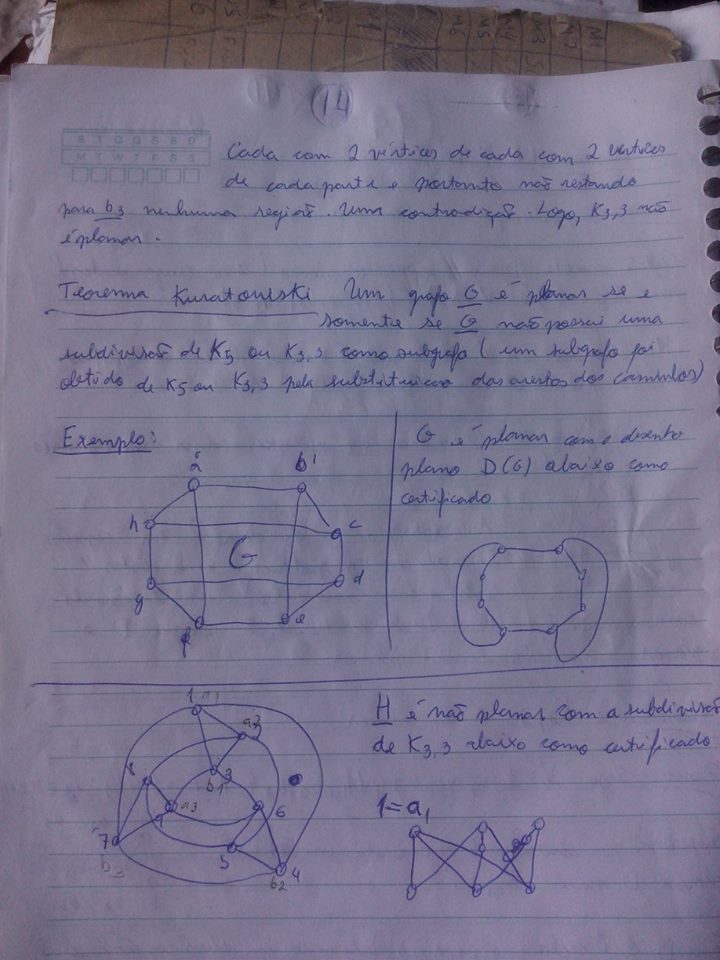 M1
M2
M3
M4
M5
M6
14
S T Q Q S S D
M T W T F S S
Cada com 2 vértices de cada com 2 vertices
de cada parte e portanto não restando
para b3 nenhuma região. Uma contradição. Logo, K3,3 não
é planar.
Teorema Kuratowski Um grafo G é planar se e
somente se G não possui uma
subdivisão de K5 ou K3,3 como subgrafo ( um subgrafo foi
obtido de K5 ou K3,3 pela substituicao das arestas dos caminhos)
Exemplo:
G é planar com o desenho
plano D(G) abaixo como
certificado
a b'
h c
G
g d
f e
H é não planar com a subdivisão
de K3,3 abaixo como certificado
1 = a1
1 a1
a2
8 3
b1
a3 6
9
7
b3 5 b2 4